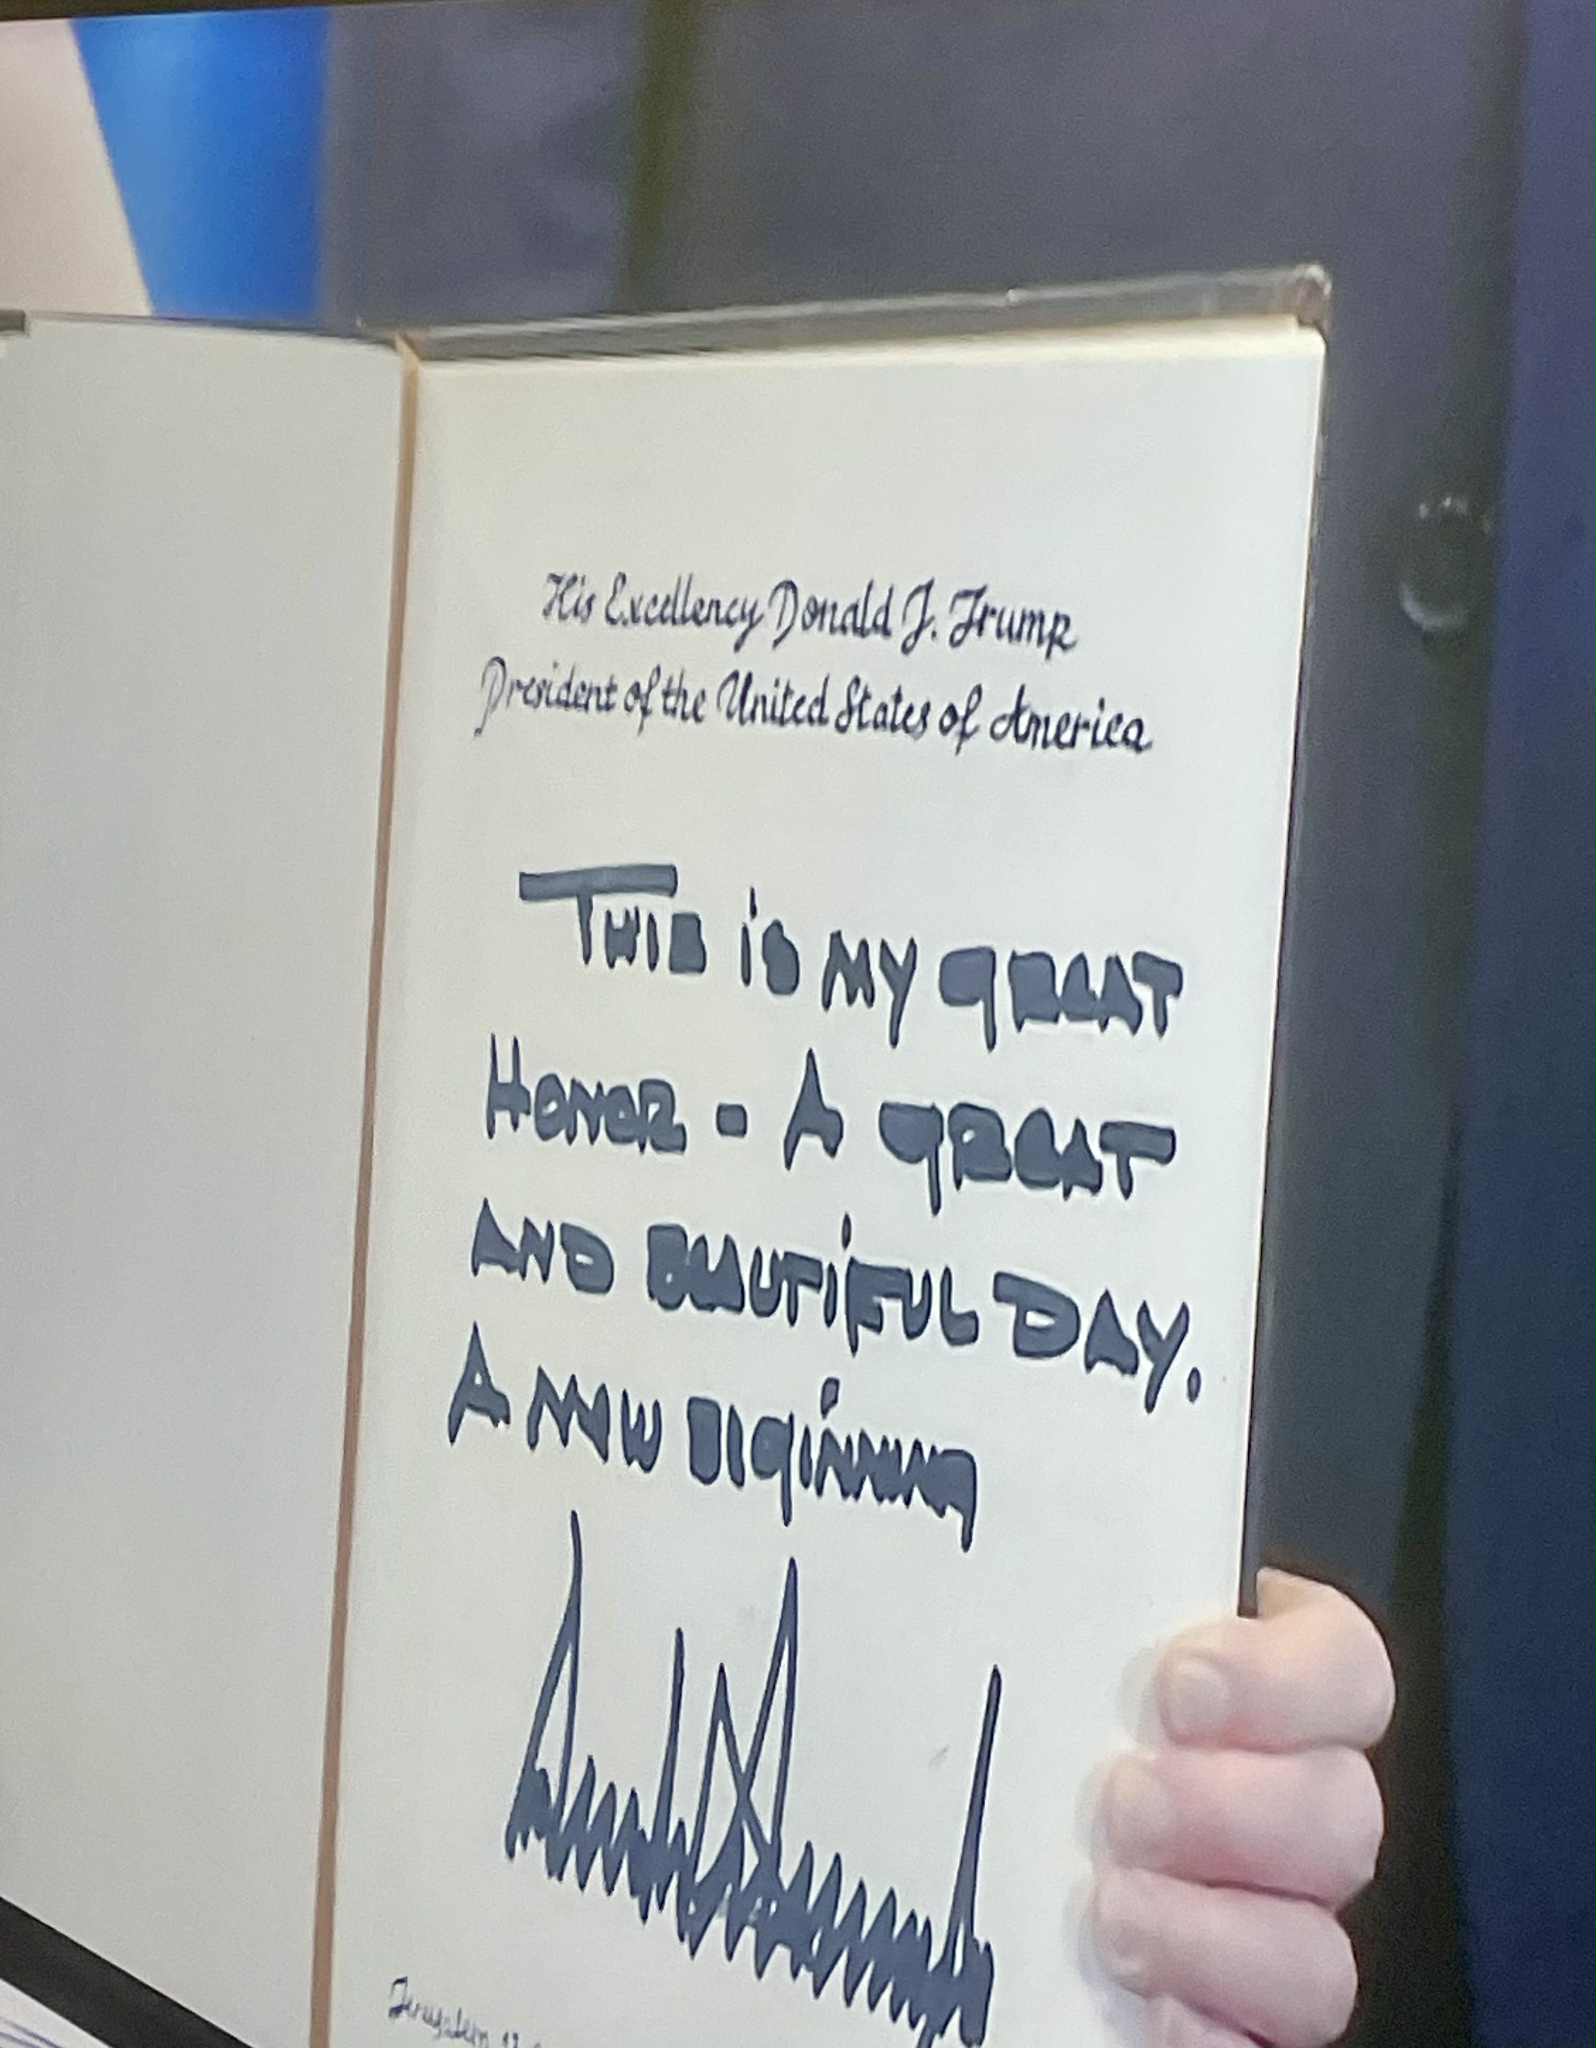 His Excellency Donald J. Trump
President of the United States of America
THIS iS MY GREAT
HONOR - A GREAT
AND BEAUTiFUL DAY.
A NEW BEGiNNING
Jerusalem